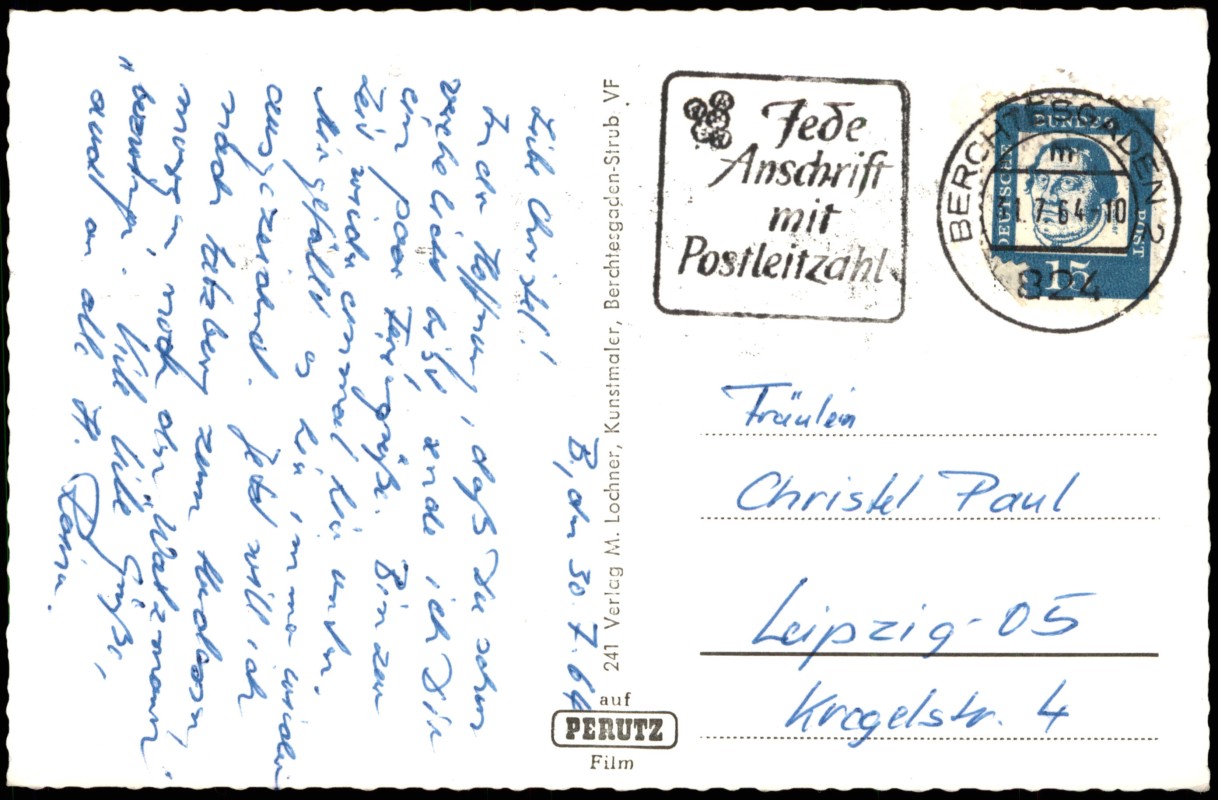 B, den 30. 7. 64
Liebe Christel!
In der Hoffnung, daß Du schon
wirklich bist sende ich Dir
ein paar Feriengrüße. Bin zur
Zeit wieder einmal hier unten.
Mir gefällt es hier immer wieder
ausgezeichnet. Jetzt will ich
nach
morgen noch der Watzmann
"bezwungen". Viele liebe Grüße,
auch an alle H. Rainer.
241 Verlag M. Lochner, Kunstmaler, Berchtesgaden-Strub VF
auf
PERUTZ
Film
Jede
Anschrift
mit
Postleitzahl
BERCHTESGADEN 2
m
1.7.64 10
824
DEUTSCHE
BUNDES
POST
15
Fräulein
Christel Paul
Leipzig-05
Kregelstr. 4